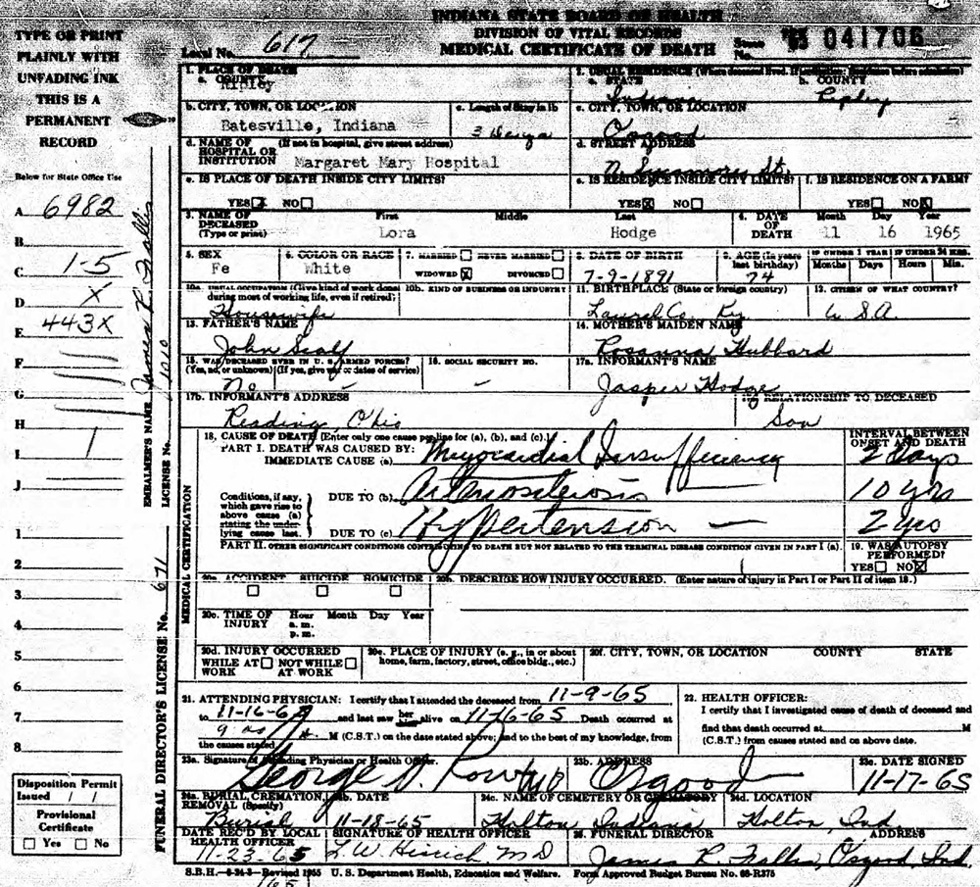 INDIANA STATE BOARD OF HEALTH
DIVISION OF VITAL RECORDS
MEDICAL CERTIFICATE OF DEATH
Local No. 617
State No. 65 041706
TYPE OR PRINT
PLAINLY WITH
UNFADING INK
THIS IS A
PERMANENT
RECORD
Below for State Office Use
A 6982
B
C 1-5
D X
E 443X
F
G
H
I 1
J
1
2
3
4
5
6
7
8
Disposition Permit
Issued / /
Provisional
Certificate
Yes No
EMBALMER'S NAME James R.
LICENSE No. 1010
FUNERAL DIRECTOR'S LICENSE No. 671
MEDICAL CERTIFICATION
1. PLACE OF DEATH
a. COUNTY
Ripley
2. USUAL RESIDENCE (Where deceased lived. If institution: Residence before admission)
a. STATE
Indiana
b. COUNTY
Ripley
b. CITY, TOWN, OR LOCATION
Batesville, Indiana
c. Length of Stay in 1b
3 Days
c. CITY, TOWN, OR LOCATION
Osgood
d. NAME OF HOSPITAL OR INSTITUTION (If not in hospital, give street address)
Margaret Mary Hospital
d. STREET ADDRESS
N. Sycamore St.
e. IS PLACE OF DEATH INSIDE CITY LIMITS?
YES X NO
e. IS RESIDENCE INSIDE CITY LIMITS?
YES X NO
f. IS RESIDENCE ON A FARM?
YES NO X
3. NAME OF DECEASED (Type or print)
First Middle Last
Lora Hodge
4. DATE OF DEATH
Month Day Year
11 16 1965
5. SEX
Fe
6. COLOR OR RACE
White
7. MARRIED NEVER MARRIED
WIDOWED X DIVORCED
8. DATE OF BIRTH
7-9-1891
9. AGE (In years last birthday)
74
IF UNDER 1 YEAR Months Days
IF UNDER 24 HRS. Hours Min.
10a. USUAL OCCUPATION (Give kind of work done during most of working life, even if retired)
Housewife
10b. KIND OF BUSINESS OR INDUSTRY
11. BIRTHPLACE (State or foreign country)
Laurel Co. Ky
12. CITIZEN OF WHAT COUNTRY?
U S A.
13. FATHER'S NAME
John Scalf
14. MOTHER'S MAIDEN NAME
Rosanna Hubbard
15. WAS DECEASED EVER IN U. S. ARMED FORCES?
(Yes, no, or unknown) (If yes, give war or dates of service)
No -
16. SOCIAL SECURITY NO.
-
17a. INFORMANT'S NAME
Jasper Hodge
17b. INFORMANT'S ADDRESS
Reading, Ohio
RELATIONSHIP TO DECEASED
Son
18. CAUSE OF DEATH [Enter only one cause per line for (a), (b), and (c).]
INTERVAL BETWEEN ONSET AND DEATH
PART I. DEATH WAS CAUSED BY:
IMMEDIATE CAUSE (a) Myocardial Insufficiency 2 days
Conditions, if any, which gave rise to above cause (a) stating the underlying cause last.
DUE TO (b) 10 yrs
DUE TO (c) Hypertension — 2 yrs
PART II. OTHER SIGNIFICANT CONDITIONS CONTRIBUTING TO DEATH BUT NOT RELATED TO THE TERMINAL DISEASE CONDITION GIVEN IN PART I (a).
19. WAS AUTOPSY PERFORMED?
YES NO X
20a. ACCIDENT SUICIDE HOMICIDE
20b. DESCRIBE HOW INJURY OCCURRED. (Enter nature of injury in Part I or Part II of item 18.)
20c. TIME OF INJURY
Hour Month Day Year
a. m.
p. m.
20d. INJURY OCCURRED
WHILE AT WORK NOT WHILE AT WORK
20e. PLACE OF INJURY (e. g., in or about home, farm, factory, street, office bldg., etc.)
20f. CITY, TOWN, OR LOCATION COUNTY STATE
21. ATTENDING PHYSICIAN: I certify that I attended the deceased from 11-9-65
to 11-16-65 and last saw her alive on 11-16-65 Death occurred at
M (C.S.T.) on the date stated above; and to the best of my knowledge, from
the causes stated
22. HEALTH OFFICER:
I certify that I investigated cause of death of deceased and
find that death occurred at M
(C.S.T.) from causes stated and on above date.
23a. Signature of Attending Physician or Health Officer.
George
23b. ADDRESS
Osgood
23c. DATE SIGNED
11-17-65
24a. BURIAL, CREMATION, REMOVAL (Specify)
Burial
24b. DATE
11-18-65
24c. NAME OF CEMETERY OR CREMATORY
Holton Indiana
24d. LOCATION
Holton, Ind
DATE REC'D BY LOCAL HEALTH OFFICER
11-23-65
SIGNATURE OF HEALTH OFFICER
L. W. MD
25. FUNERAL DIRECTOR ADDRESS
James R. Osgood, Ind.
S.B.H.—6-24-3—Revised 1955 U. S. Department Health, Education and Welfare. Form Approved Budget Bureau No. 68-R375
165